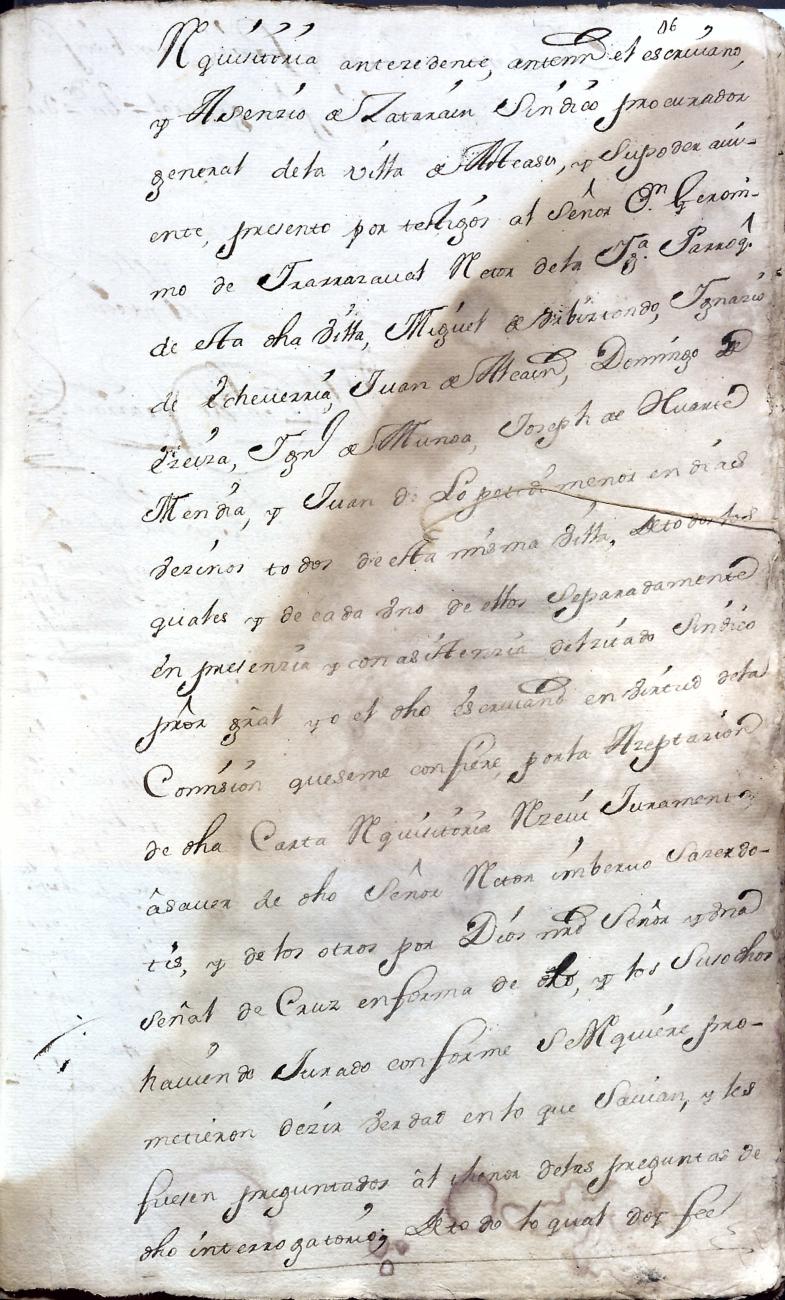 06
Rquisitoria antezedente, antemi el escriuano,
y Asenzio de Zatarain Sindico procurador
general dela villa de Asteasu, y Supoder aui-
ente, presento por testigos al Señor Dn. Geroni-
mo de Irarrazaual Retor dela Yga. Parroql.
de esta dha villa, Miguel de Iribirondo, Ygnazio
de Echeuerria, Juan de Alcain, Domingo de
Ezeiza, Ygn.º de Munoa, Joseph de Huarte
Mendia, y Juan de Lopetedi menor en dias
vezinos todos de esta misma villa, de todos los
quales y de cada vno de ellos Separadamente
en presenzia y con asistenzia delzitado Sindico
prôr grâl yo el dho escriuano en virtud dela
Comision queseme confiere, porla Azeptazion
de dha Carta Rquisitoria Rzeui Juramento,
âsauer de dho Señor Retor imberuo Sazerdo-
tis, y de los otros por Dios nro Señor y vna
señal de Cruz enforma de dro, y los Susodhos
hauiendo Jurado conforme Se Rquiere pro-
metieron dezir verdad enlo que Sauian, y les
fuesen preguntados âl thenor delas preguntas de
dho interrogatorio; de todo lo qual doy fee